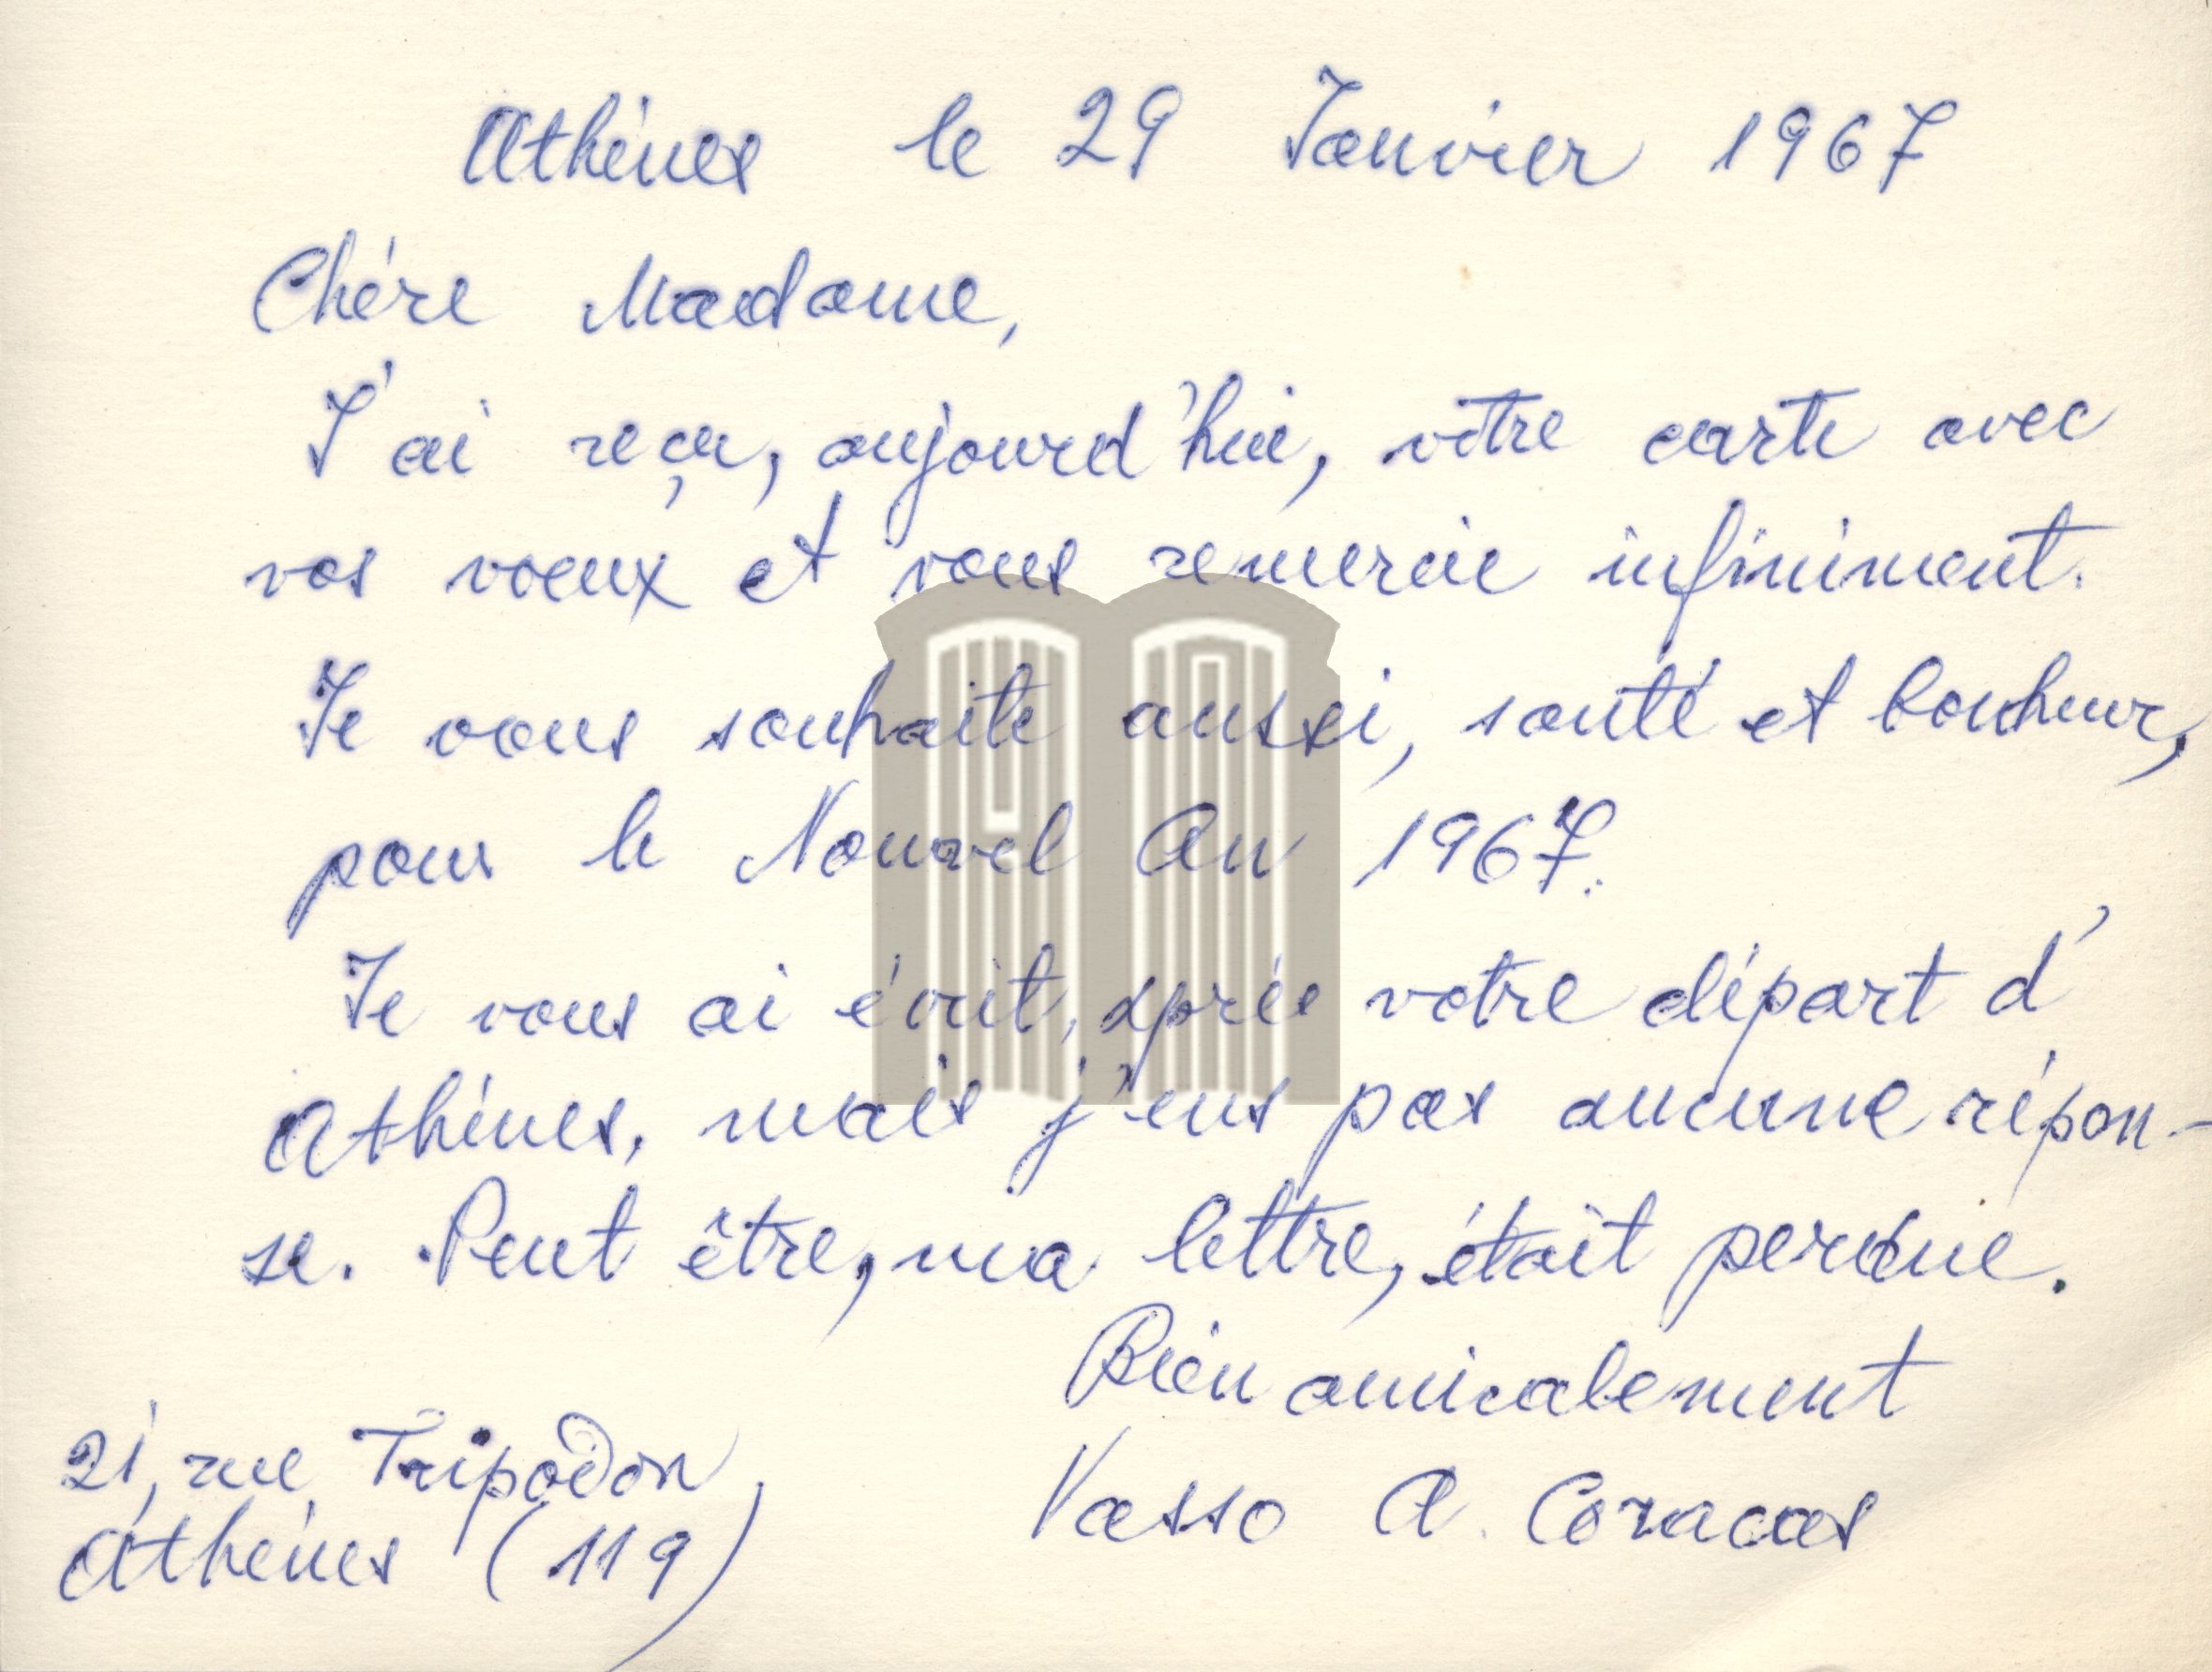 Athènes le 29 Janvier 1967
Chère Madame,
J'ai reçu, aujourd'hui, vôtre carte avec
vos voeux et vous remercie infiniment.
Je vous souhaite aussi, santé et bonheur,
pour le Nouvel An 1967.
Je vous ai écrit, après votre départ d'
Athènes, mais j'eus pas aucune répon-
se. Peut être, ma lettre, était perdue.
Bien amicalement
Vasso A. Coracas
21, rue Tripodon,
Athènes (119)